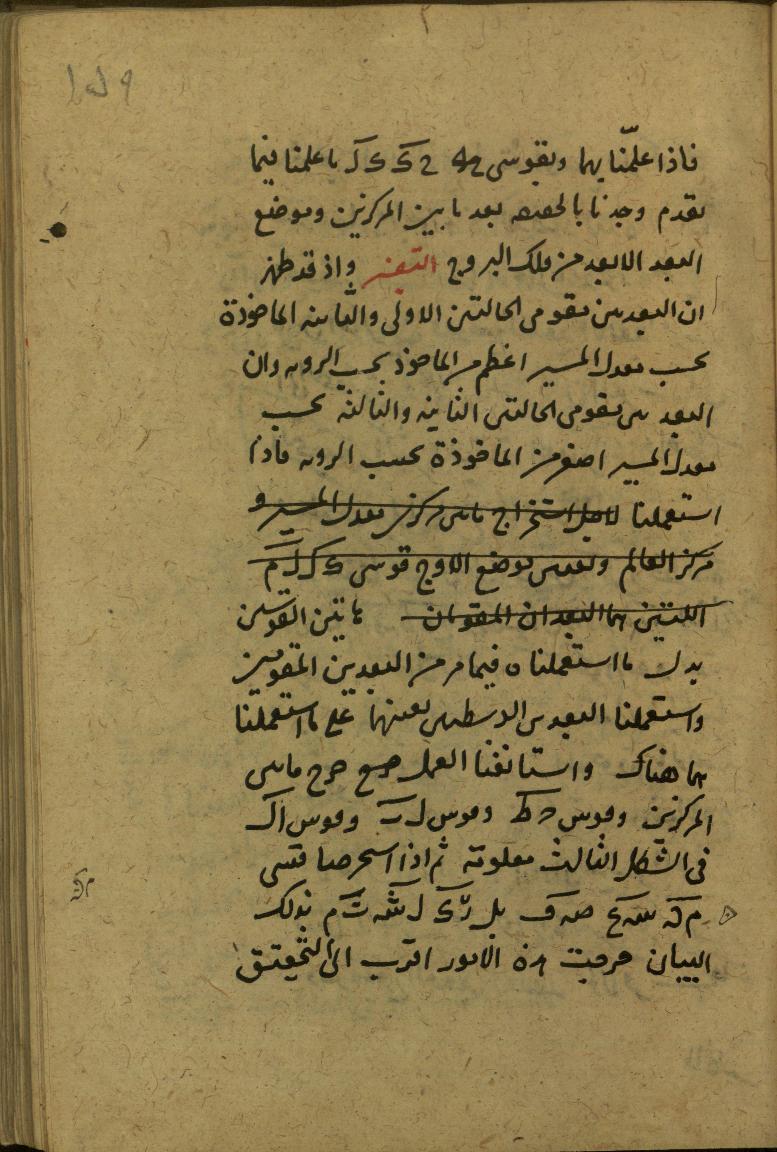 فاذا علمنا بها وبقوسى ح ك ك ل ما علمنا فيما
تقدم وجدنا بالحقيقه بعد ما بين المركزين وموضع
البعد الابعد من فلك البروج التفسير واذ قد ظهر
ان البعد بين مقومى الحالتين الاولى والثانيه الماخوذة
بحسب معدل المسير اعظم من الماخوذ بحسب الرويه وان
البعد بين مقومى الحالتين الثانيه والثالثه بحسب
معدل المسير اصغر من الماخوذة بحسب الرويه فاذا
استعملنا لاجل استخراج ما بين مركزى معدل المسير و
مركز العالم وتعيين موضع الاوج قوسى ك ل ل م
اللتين هما البعدان المقومان هاتين القوسين
بدل ما استعملناه فيما مر من البعدين المقومين
واستعملنا البعدين الوسطيين بعينهما على ما استعملنا
هما هناك واستانفنا العمل جميع خرج ما بين
المركزين وقوس ط وقوس ل وقوس ال
فى الشكل الثالث معلومة ثم اذا استخرجنا قسى
م سع صه ف بل ك ل ش ت م بذلك
البيان خرجت هذه الامور اقرب الى التحقيق